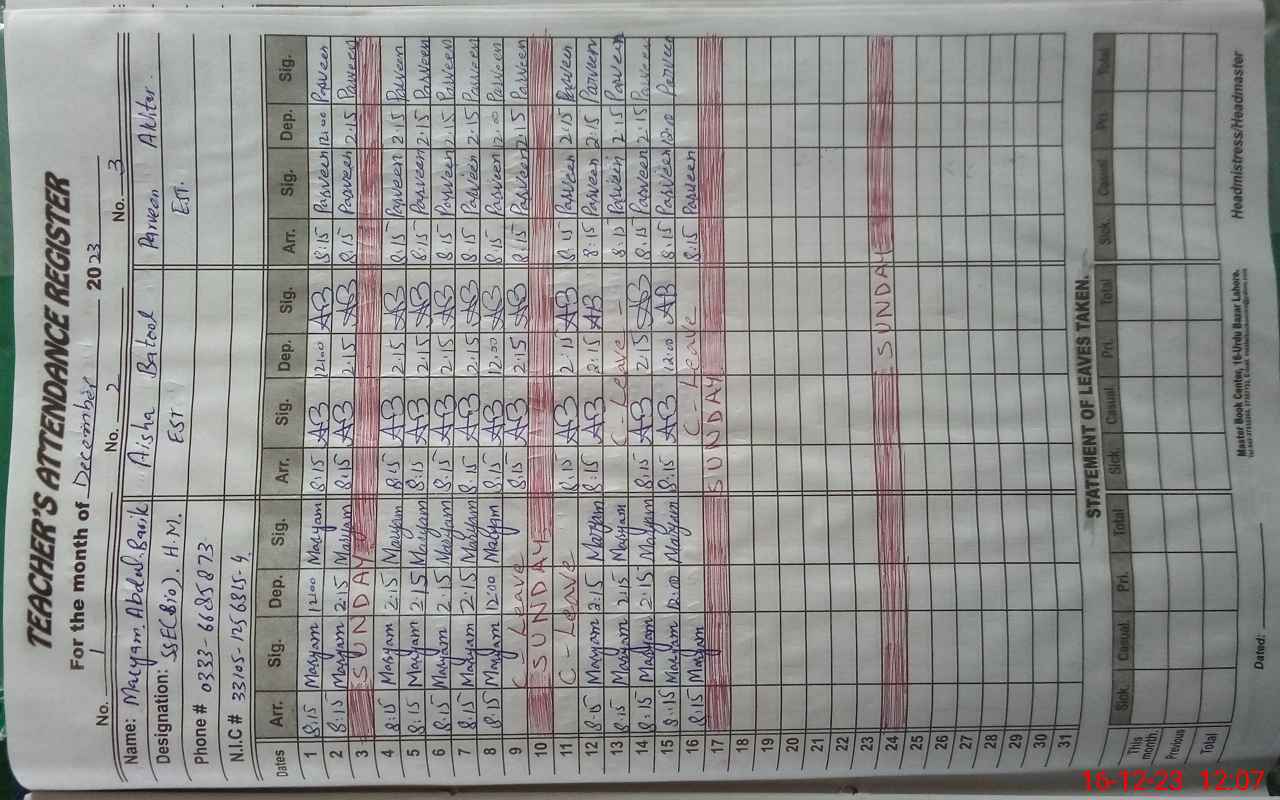 TEACHER'S ATTENDANCE REGISTER
For the month of December 2023
No. 1 No. 2 No. 3
Name: Maryam Abdul Barik Aisha Batool Parveen Akhtar.
Designation: SSE(Bio). H.M. EST EST.
Phone # 0333-6685873
N.I.C # 33105-1256315-4
Dates Arr. Sig. Dep. Sig. Arr. Sig. Dep. Sig. Arr. Sig. Dep. Sig.
1 8:15 Maryam 12:00 Maryam 8:15 AB 12:00 AB 8:15 Parveen 12:00 Parveen
2 8:15 Maryam 2:15 Maryam 8:15 AB 2:15 AB 8:15 Parveen 2:15 Parveen
3 SUNDAY
4 8:15 Maryam 2:15 Maryam 8:15 AB 2:15 AB 8:15 Parveen 2:15 Parveen
5 8:15 Maryam 2:15 Maryam 8:15 AB 2:15 AB 8:15 Parveen 2:15 Parveen
6 8:15 Maryam 2:15 Maryam 8:15 AB 2:15 AB 8:15 Parveen 2:15 Parveen
7 8:15 Maryam 2:15 Maryam 8:15 AB 2:15 AB 8:15 Parveen 2:15 Parveen
8 8:15 Maryam 12:00 Maryam 8:15 AB 12:00 AB 8:15 Parveen 12:00 Parveen
9 C-Leave 8:15 AB 2:15 AB 8:15 Parveen 2:15 Parveen
10 SUNDAY
11 C-Leave 8:15 AB 2:15 AB 8:15 Parveen 2:15 Parveen
12 8:15 Maryam 2:15 Maryam 8:15 AB 2:15 AB 8:15 Parveen 2:15 Parveen
13 8:15 Maryam 2:15 Maryam C-Leave - 8:15 Parveen 2:15 Parveen
14 8:15 Maryam 2:15 Maryam 8:15 AB 2:15 AB 8:15 Parveen 2:15 Parveen
15 8:15 Maryam 12:00 Maryam 8:15 AB 12:00 AB 8:15 Parveen 12:00 Parveen
16 8:15 Maryam C-Leave 8:15 Parveen
17 SUNDAY
18
19
20
21
22
23
24 SUNDAY
25
26
27
28
29
30
31
STATEMENT OF LEAVES TAKEN.
Sick. Casual. Pri. Total Sick. Casual Pri. Total Sick. Casual Pri. Total
This month.
Previous
Total
Dated: Master Book Center, 16-Urdu Bazar Lahore. Headmistress/Headmaster
16-12-23 12:07